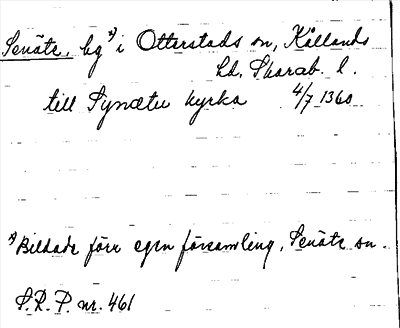 Senäte, by x) i Otterstads sn, Kållands
hd, Skarab. l.
till Synætu kyrka 4/7 1360
x) Bildade förr egen församling, Senäte sn.
S.R.P. nr. 461